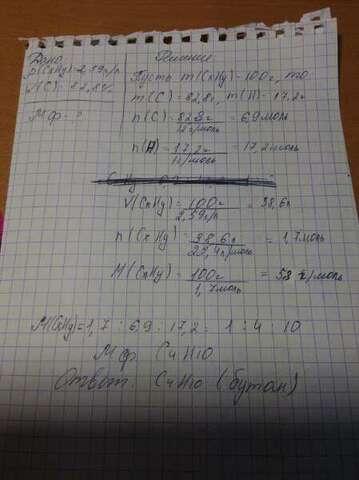 Дано
ρ(CxHy)=2,59г/л
W(C)=82,8%
Мф - ?
Решение
Пусть m(CxHy)=100г, то
m(C)=82,8г, m(H)=17,2г
n(C)=82,8г/12г/моль = 6,9 моль
n(H)=17,2г/1г/моль = 17,2 моль
V(CxHy)=100г/2,59г/л = 38,6л
n(CxHy)=38,6л/22,4л/моль = 1,7моль
M(CxHy)=100г/1,7моль = 58 г/моль
M(CxHy)=1,7 : 6,9 : 17,2 = 1 : 4 : 10
Мф C4H10
Ответ C4H10 (бутан)